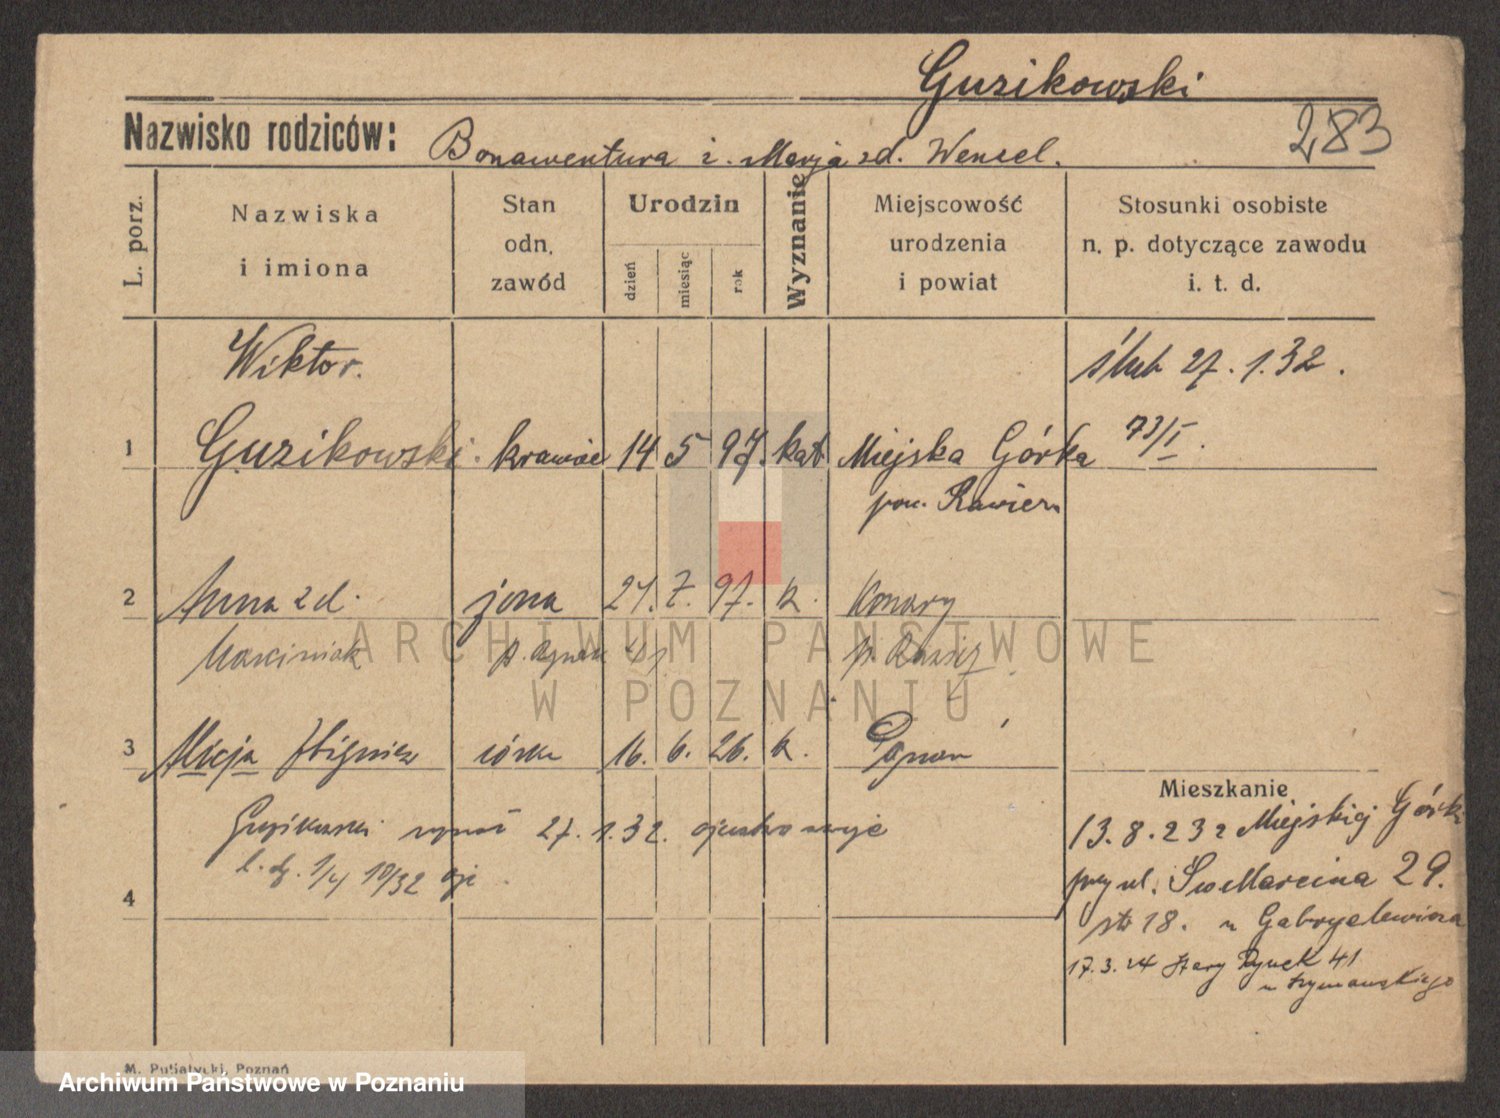 Guzikowski
283
Nazwisko rodziców: Bonawentura i. Marja zd. Wencel.
L. porz.
Nazwiska i imiona
Stan odn. zawód
Urodzin
dzień
miesiąc
rok
Wyznanie
Miejscowość urodzenia i powiat
Stosunki osobiste n. p. dotyczące zawodu i. t. d.
Wiktor. ślub 27. 1. 32.
1 Guzikowski. krawiec 14 5 97. kat Miejska Górka 73/I.
pow. Rawicz
2 Anna zd. żona 7. 97. k. Konary
Marciniak p. Rawicz
3 Alicja Zbigniew córka 16. 6. 26. k. Poznań
Mieszkanie
Guzikowski uznał 27. 1. 32. ojcostwo swoje
13. 8. 23 z Miejskiej Górki
1/4 10/32
4
przy ul. Św Marcina 29.
str 18. u Gabryelewicza
17. 3. 24 Stary Rynek 41
u Szymańskiego
ARCHIWUM PAŃSTWOWE
W POZNANIU
M. Putiatycki, Poznań
Archiwum Państwowe w Poznaniu